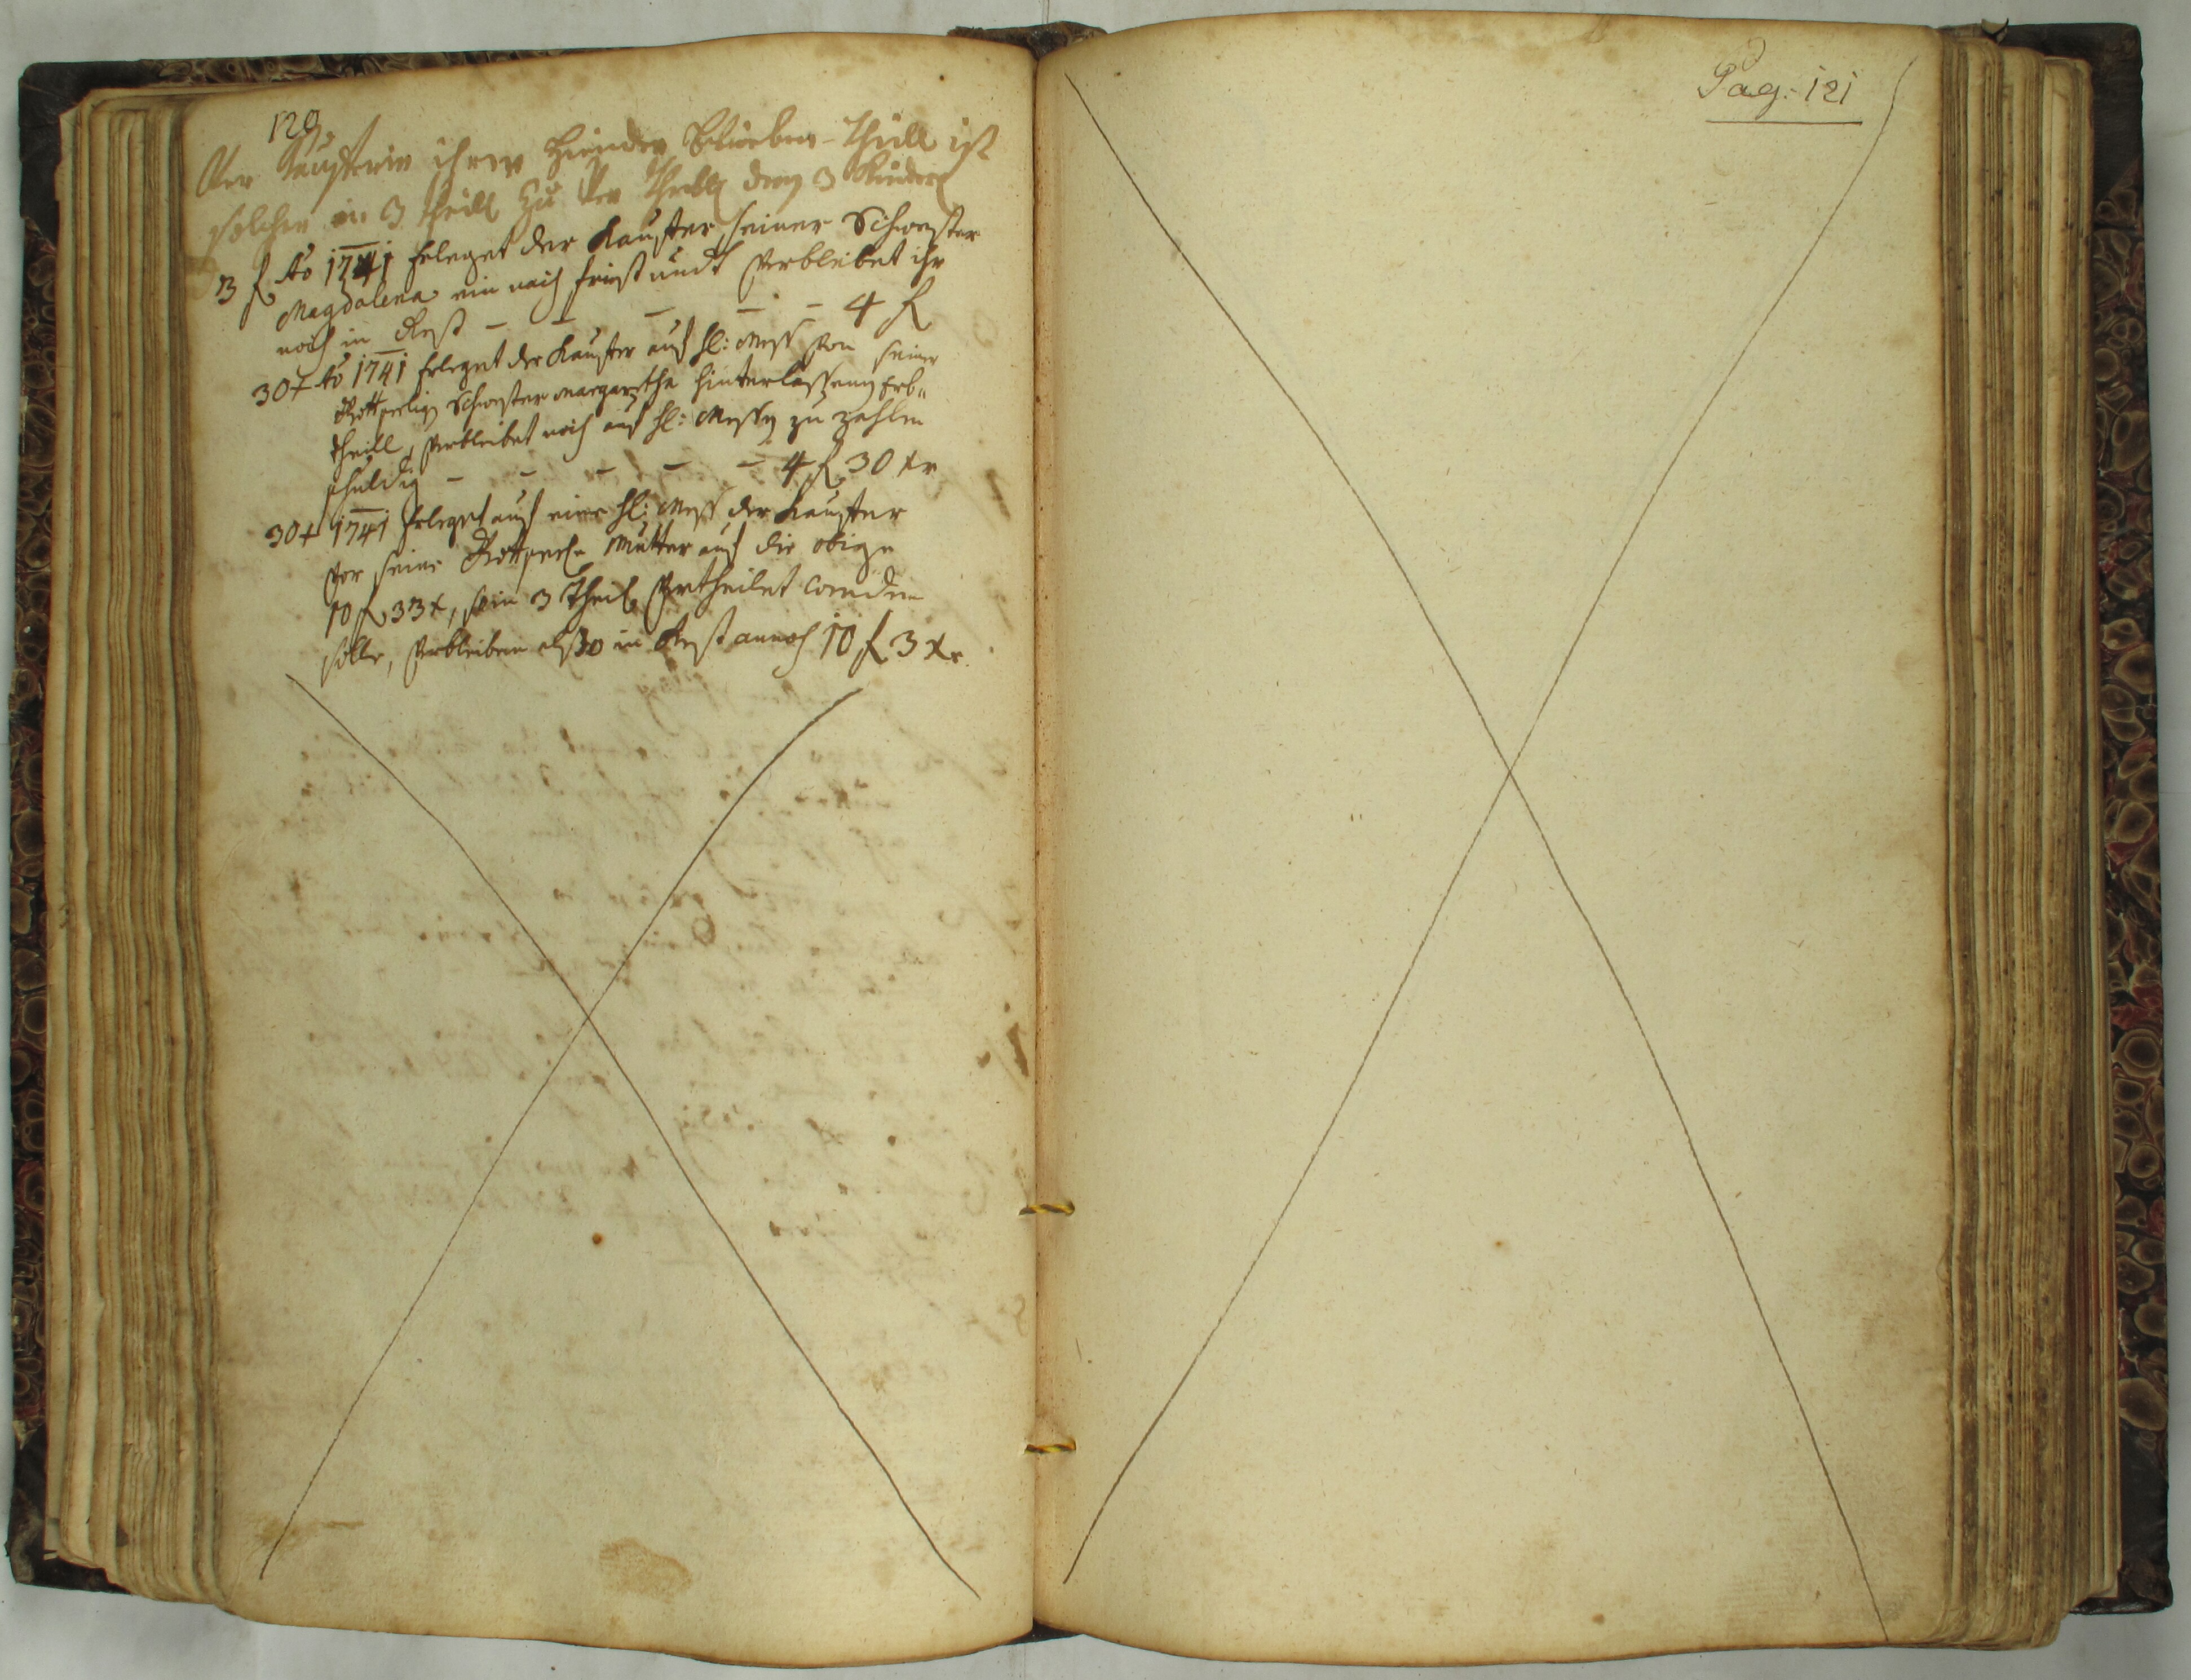 120
Der Kaufferin ihrer hinder blieben-Theill ist
solcher in 3 theill zu der Theill denen 3 Kinder
3 f Ao 1741 Erleget der Kauffer seiner Schwester
Magdalena ein nach frist undt verbleibet ihr
noch in Rest - - - - - 4 f
30 x Ao 1741 Erleget der Kauffer auf hl: Mess von seiner
Gottseelig Schwester Margaretha hinterlassenen Erb„
theill, verbleibet noch auf hl: Messen zu zahlen
schuldig - - - - - 4 f 30 xr
30 x 1741 Erleget auf eine hl: Mess der Kauffer
vor seine Gottseel. Mutter auf die obige
10 f 33 x, so in 3 Theil vertheilet werden
solle, verbleiben also in Rest annoch 10 f 3 xr.
Pag: 121